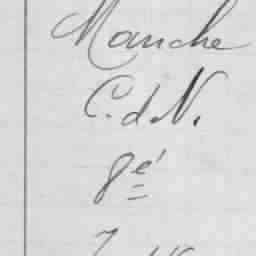 Manche
C. d. N.
8é